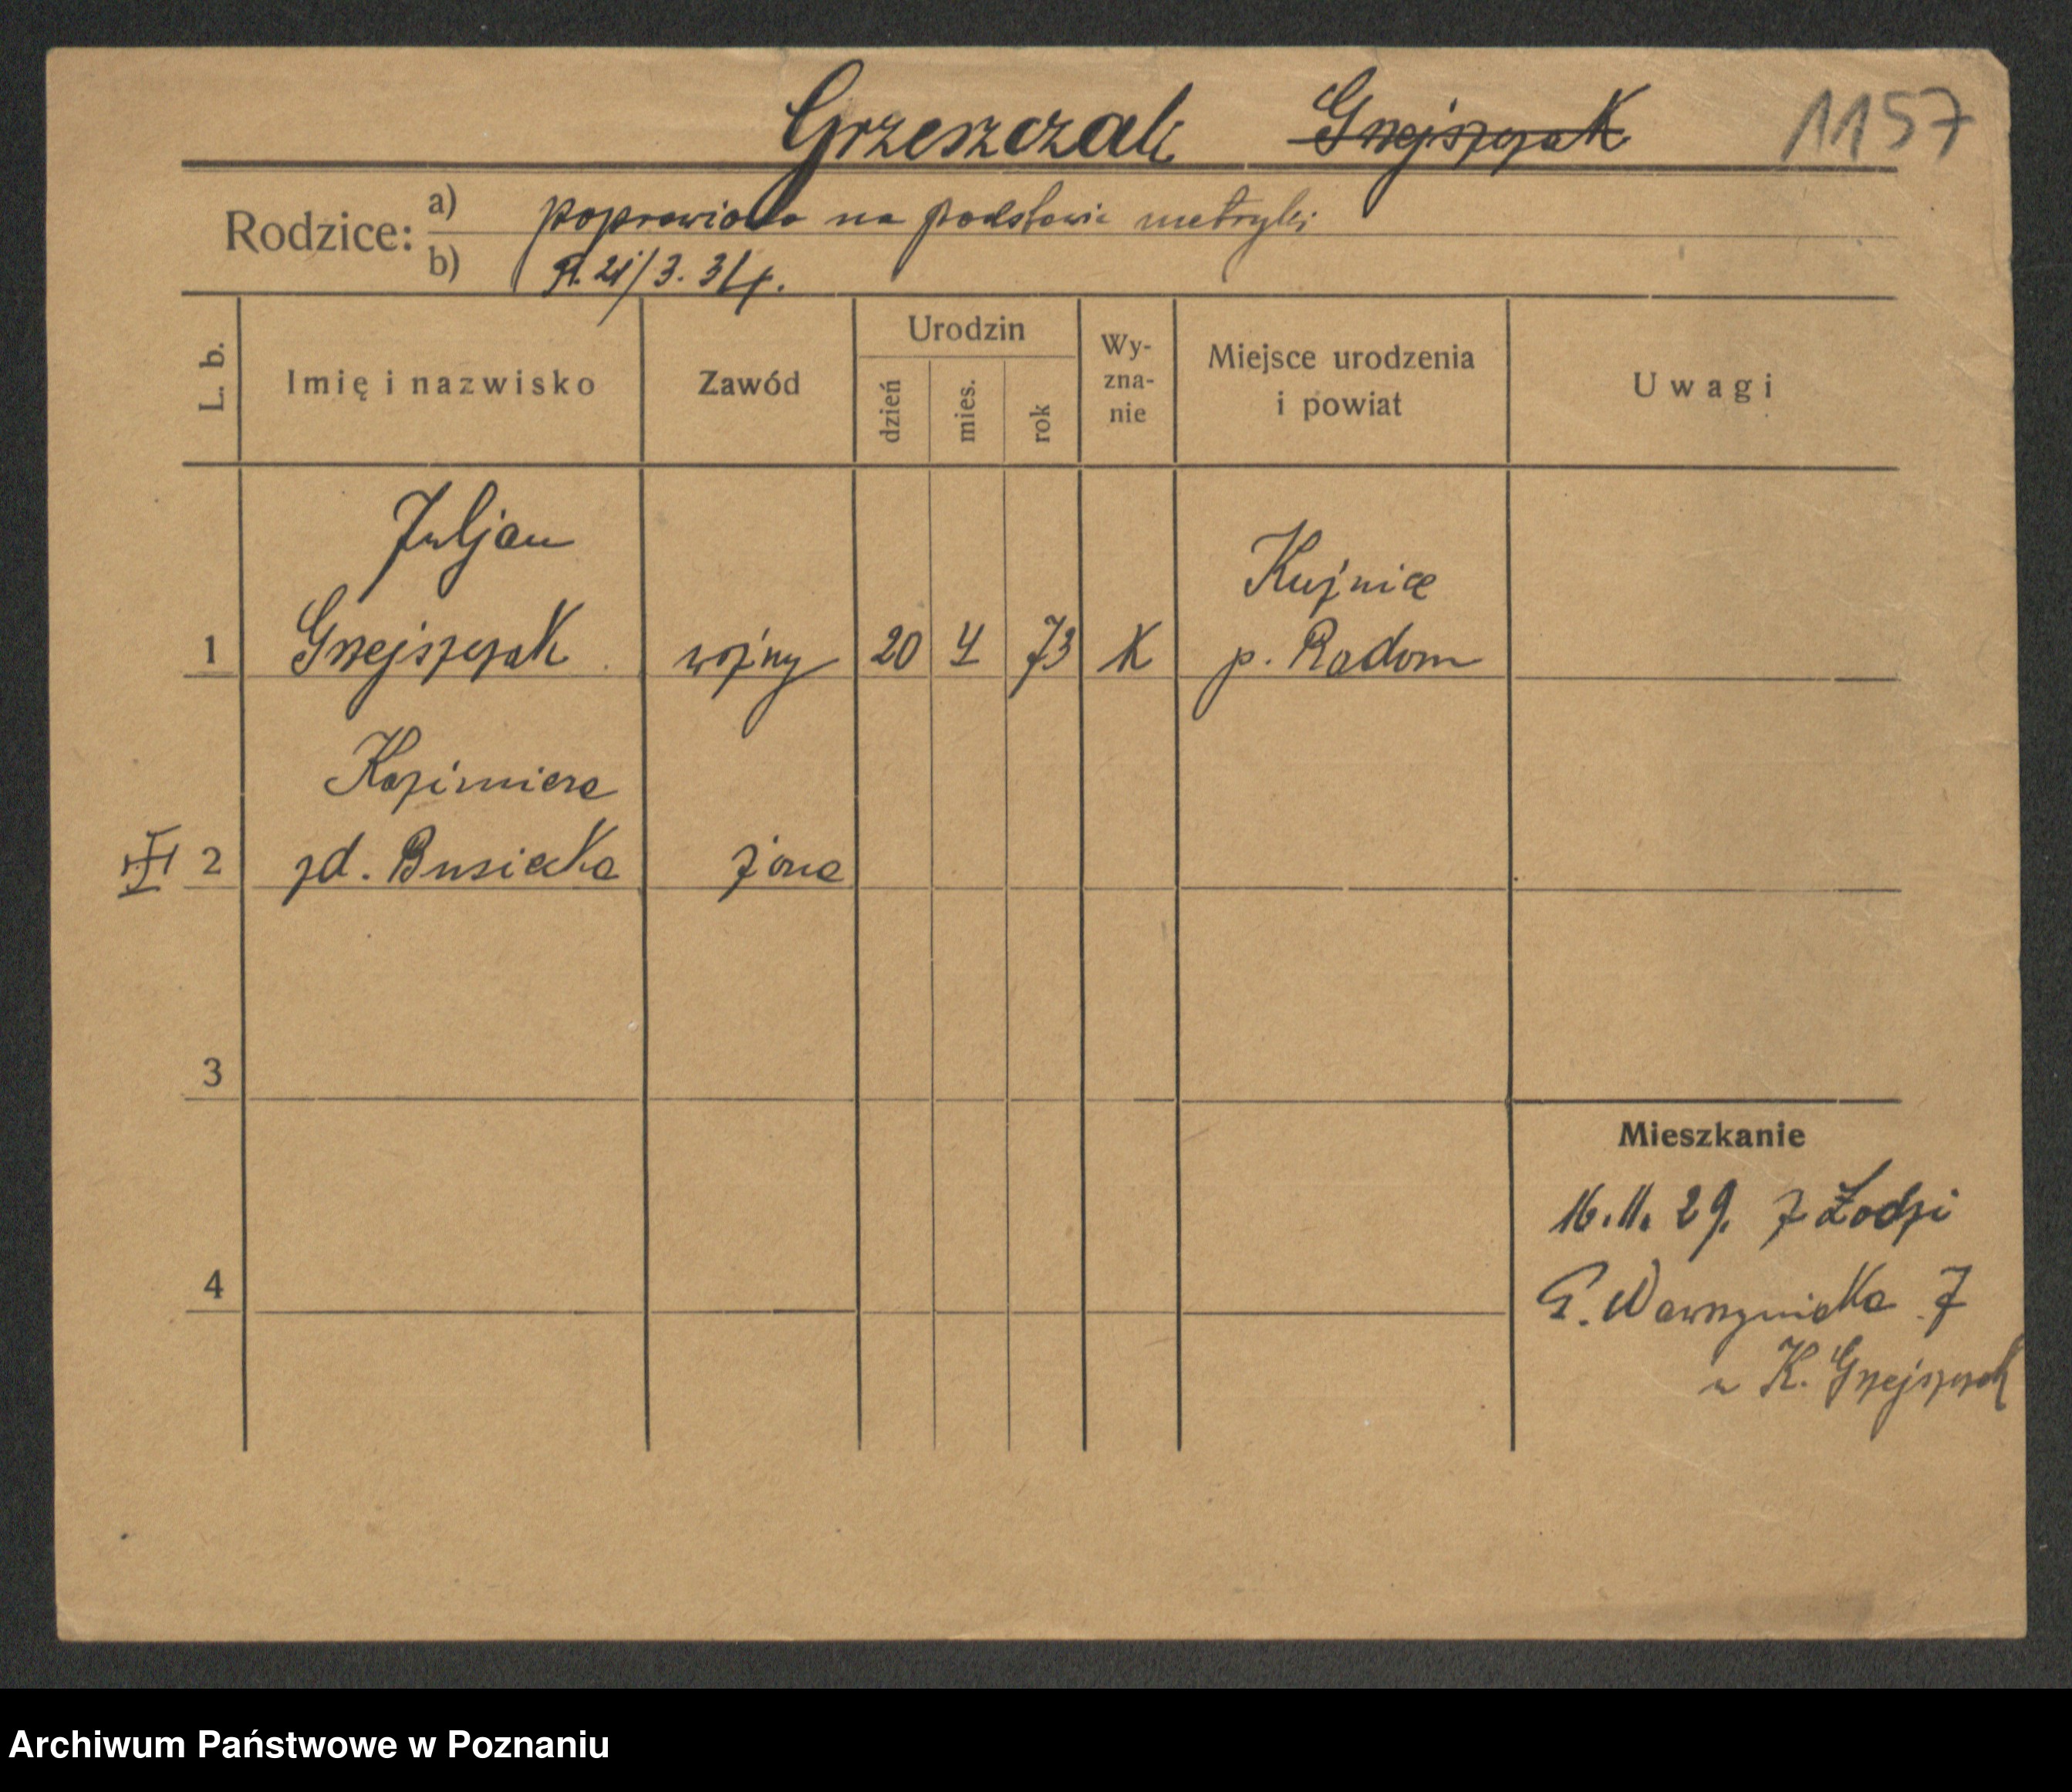 Grzeszczak Grzejszczak 1157
Rodzice: a) poprawiono na podstawie metryki
b) P. 21/3. 34.
L. b.
Imię i nazwisko
Zawód
Urodzin
dzień
mies.
rok
Wy-
zna-
nie
Miejsce urodzenia
i powiat
Uwagi
Juljan
Kuźnice
1 Grzejszczak woźny 20 4 73 K p. Radom
Kazimiera
2 zd. Busiacka żona
3
Mieszkanie
16.11.29. z Łodzi
4
G. Wawrzyniaka 7
u K. Grzejszczak
Archiwum Państwowe w Poznaniu